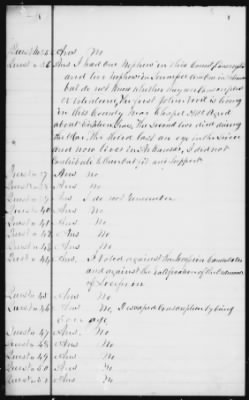 Quest 34 Ans No
Quest 35 Ans I had one Nephew in this County
and two nephews in
but do not know whether they were conscripted
or volunteers. The first John is living
in this County near Chapel Hill Aged
about Years. The Second two died during
the War. The third Lost an eye in the Service
and now lives in Arkansas, I did not
Contribute to their outfit or Support
Quest 37 Ans No
Quest 38 Ans No
Quest 39 Ans I do not remember
Quest 40 Ans No
Quest 41 Ans No
Quest 42 Ans No
Quest 43 Ans No
Quest 44 Ans I Voted against the Secession Candidates
and against the ratification of the Ordinance
of Secession
Quest 45 Ans No
Quest 46 Ans No, I escaped Conscription by being
over age
Quest 47 Ans No
Quest 48 Ans No
Quest 49 Ans No
Quest 50 Ans No
Quest 51 Ans No